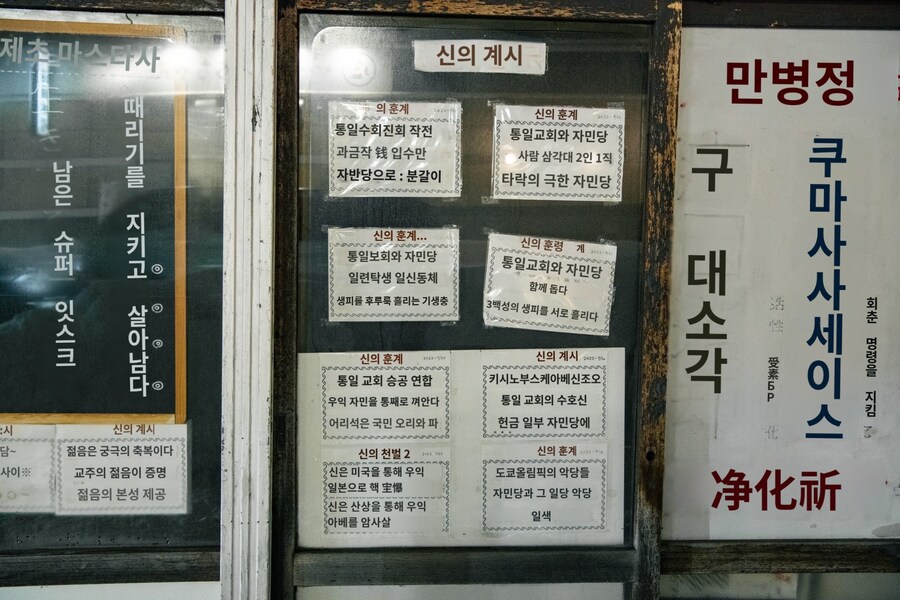 제초 마스타사
때리기를 지키고 살아남다
남은 슈퍼 잇스크
신의 계시
젊음은 궁극의 축복이다
교주의 젊음이 증명
젊음의 본성 제공
:시
담~
사이※
신의 계시
의 훈계
통일수회진회 작전
과금작 銭 입수만
자반당으로 : 분갈이
신의 훈계
통일교회와 자민당
사람 삼각대 2인 1직
타락의 극한 자민당
신의 훈계...
통일보회와 자민당
일련탁생 일신동체
생피를 후루룩 흘리는 기생충
신의 훈령 계
통일교회와 자민당
함께 돕다
3백성의 생피를 서로 흘리다
신의 훈계
통일 교회 승공 연합
우익 자민을 통째로 껴안다
어리석은 국민 오리와 파
신의 계시
키시노부스케아베신조오
통일 교회의 수호신
헌금 일부 자민당에
신의 천벌 2
신은 미국을 통해 우익
일본으로 핵
신은 산상을 통해 우익
아베를 암사살
신의 훈계
도쿄올림픽의 악당들
자민당과 그 일당 악당
일색
만병정
구 대소각
쿠마사사세이스
회춘 명령을 지킴
活性
愛素БР
化
净化祈